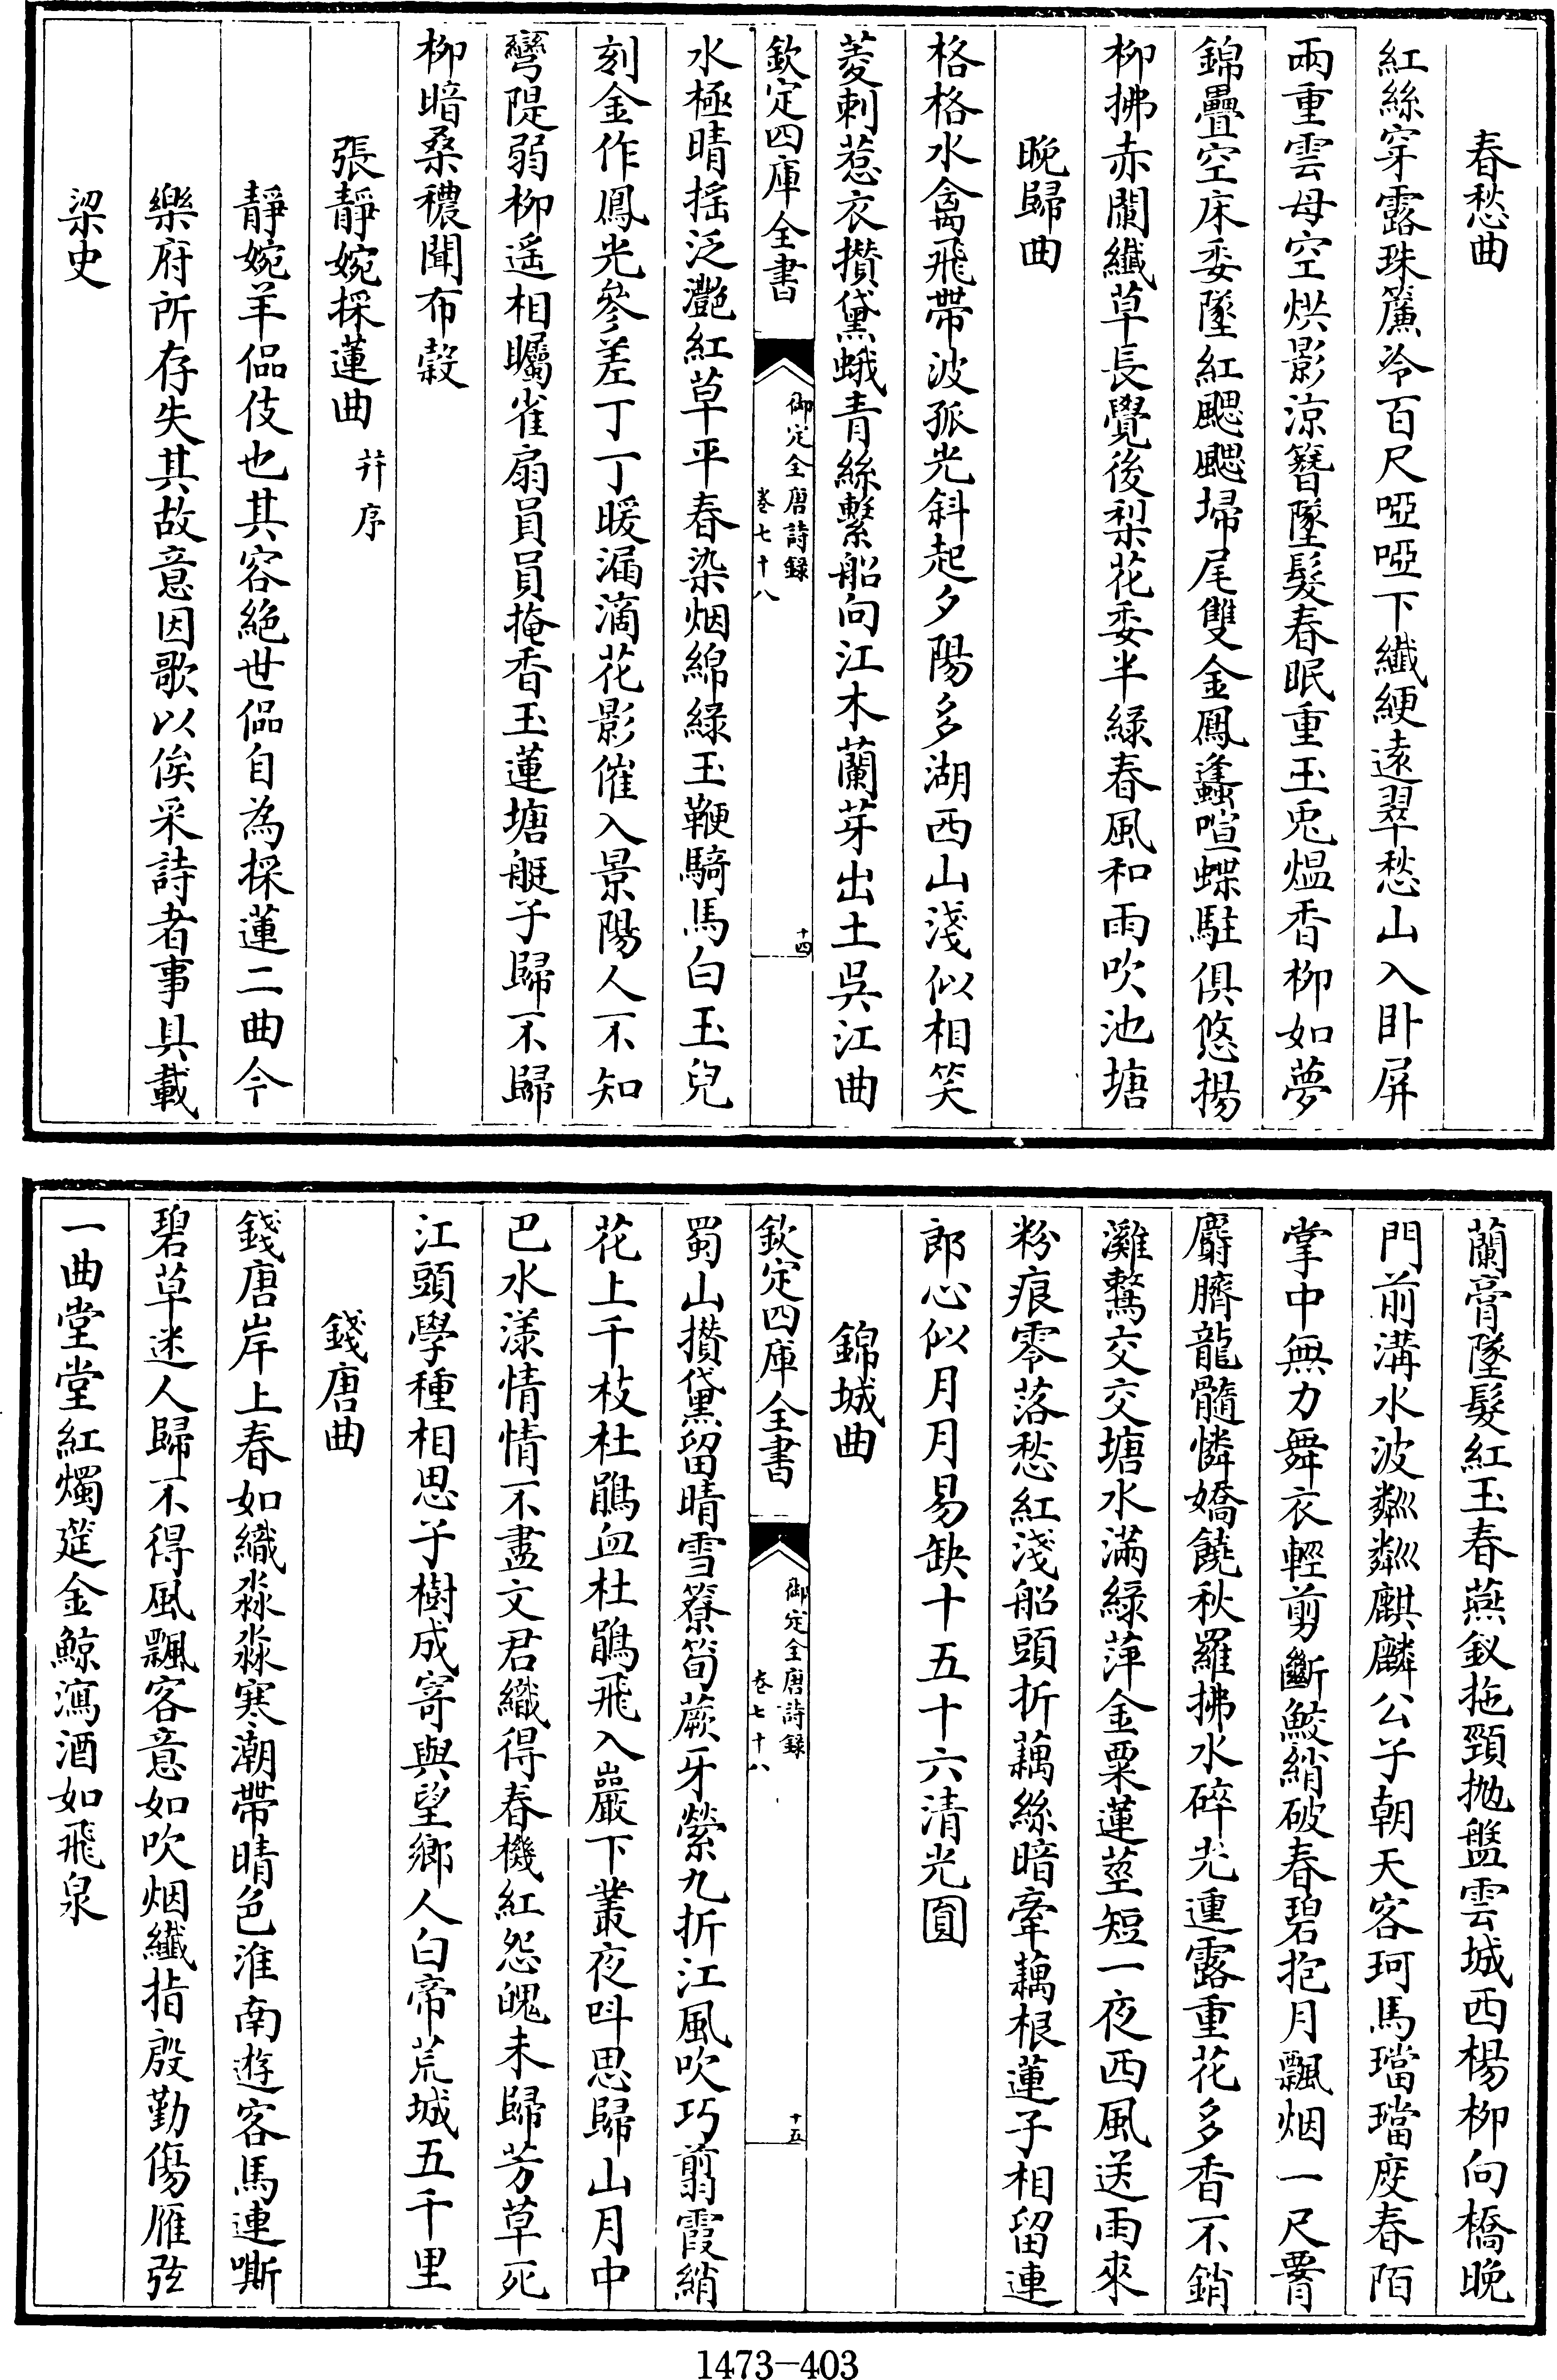 春愁曲
紅絲穿露珠簾冷百尺啞啞下纖綆遠翠愁山入卧屏
兩重雲母空烘影涼簪墜髮春眠重玉兎熅香柳如夢
錦疊空床委墜紅颸颸埽尾雙金鳳蠭喧蝶駐俱悠揚
柳拂赤闌纖草長覺後梨花委半緑春風和雨吹池塘
晩歸曲
格格水禽飛帶波孤光斜起夕陽多湖西山淺似相笑
菱刺惹衣攅黛蛾青絲繫船向江木蘭芽出土吳江曲
欽定四庫全書
御定全唐詩録
卷七十八
十四
水極晴揺泛灔紅草平春染烟綿緑玉鞭騎馬白玉兒
刻金作鳳光參差丁丁暖漏滴花影催入景陽人不知
彎隄弱柳遥相矚雀扇員員掩香玉蓮塘艇子歸不歸
柳暗桑穠聞布糓
張靜婉採蓮曲 并序
靜婉羊侃伎也其容絶世侃自為採蓮二曲今
樂府所存失其故意因歌以俟采詩者事具載
梁史
蘭膏墜髮紅玉春燕釵拖頸抛盤雲城西楊柳向橋晩
門前溝水波粼粼麒麟公子朝天客珂馬璫璫度春陌
掌中無力舞衣輕剪斷鮫綃破春碧抱月飄烟一尺腰
麝臍龍髓憐嬌饒秋羅拂水碎光動露重花多香不銷
灘鶩交交塘水滿緑萍金粟蓮莖短一夜西風送雨來
粉痕零落愁紅淺船頭折藕絲暗牽藕根蓮子相留連
郎心似月月易缺十五十六清光圓
錦城曲
欽定四庫全書
御定全唐詩録
卷七十八
十五
蜀山攅黛留晴雪簝筍蕨牙縈九折江風吹巧翦霞綃
花上千枝杜鵑血杜鵑飛入巖下叢夜呌思歸山月中
巴水漾情情不盡文君織得春機紅怨魄未歸芳草死
江頭學種相思子樹成寄與望鄉人白帝荒城五千里
錢唐曲
錢唐岸上春如織淼淼寒潮帶晴色淮南遊客馬連嘶
碧草迷人歸不得風飄客意如吹烟纖指殷勤傷雁弦
一曲堂堂紅燭筵金鯨瀉酒如飛泉
1473-403